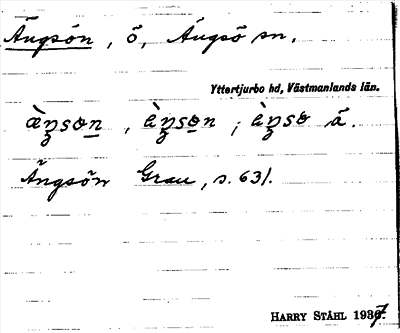 Ängsön, ö, Ängsö sn.
Yttertjurbo hd, Västmanlands län.
Ängsön Grau, s. 631.
HARRY STÅHL 1937.